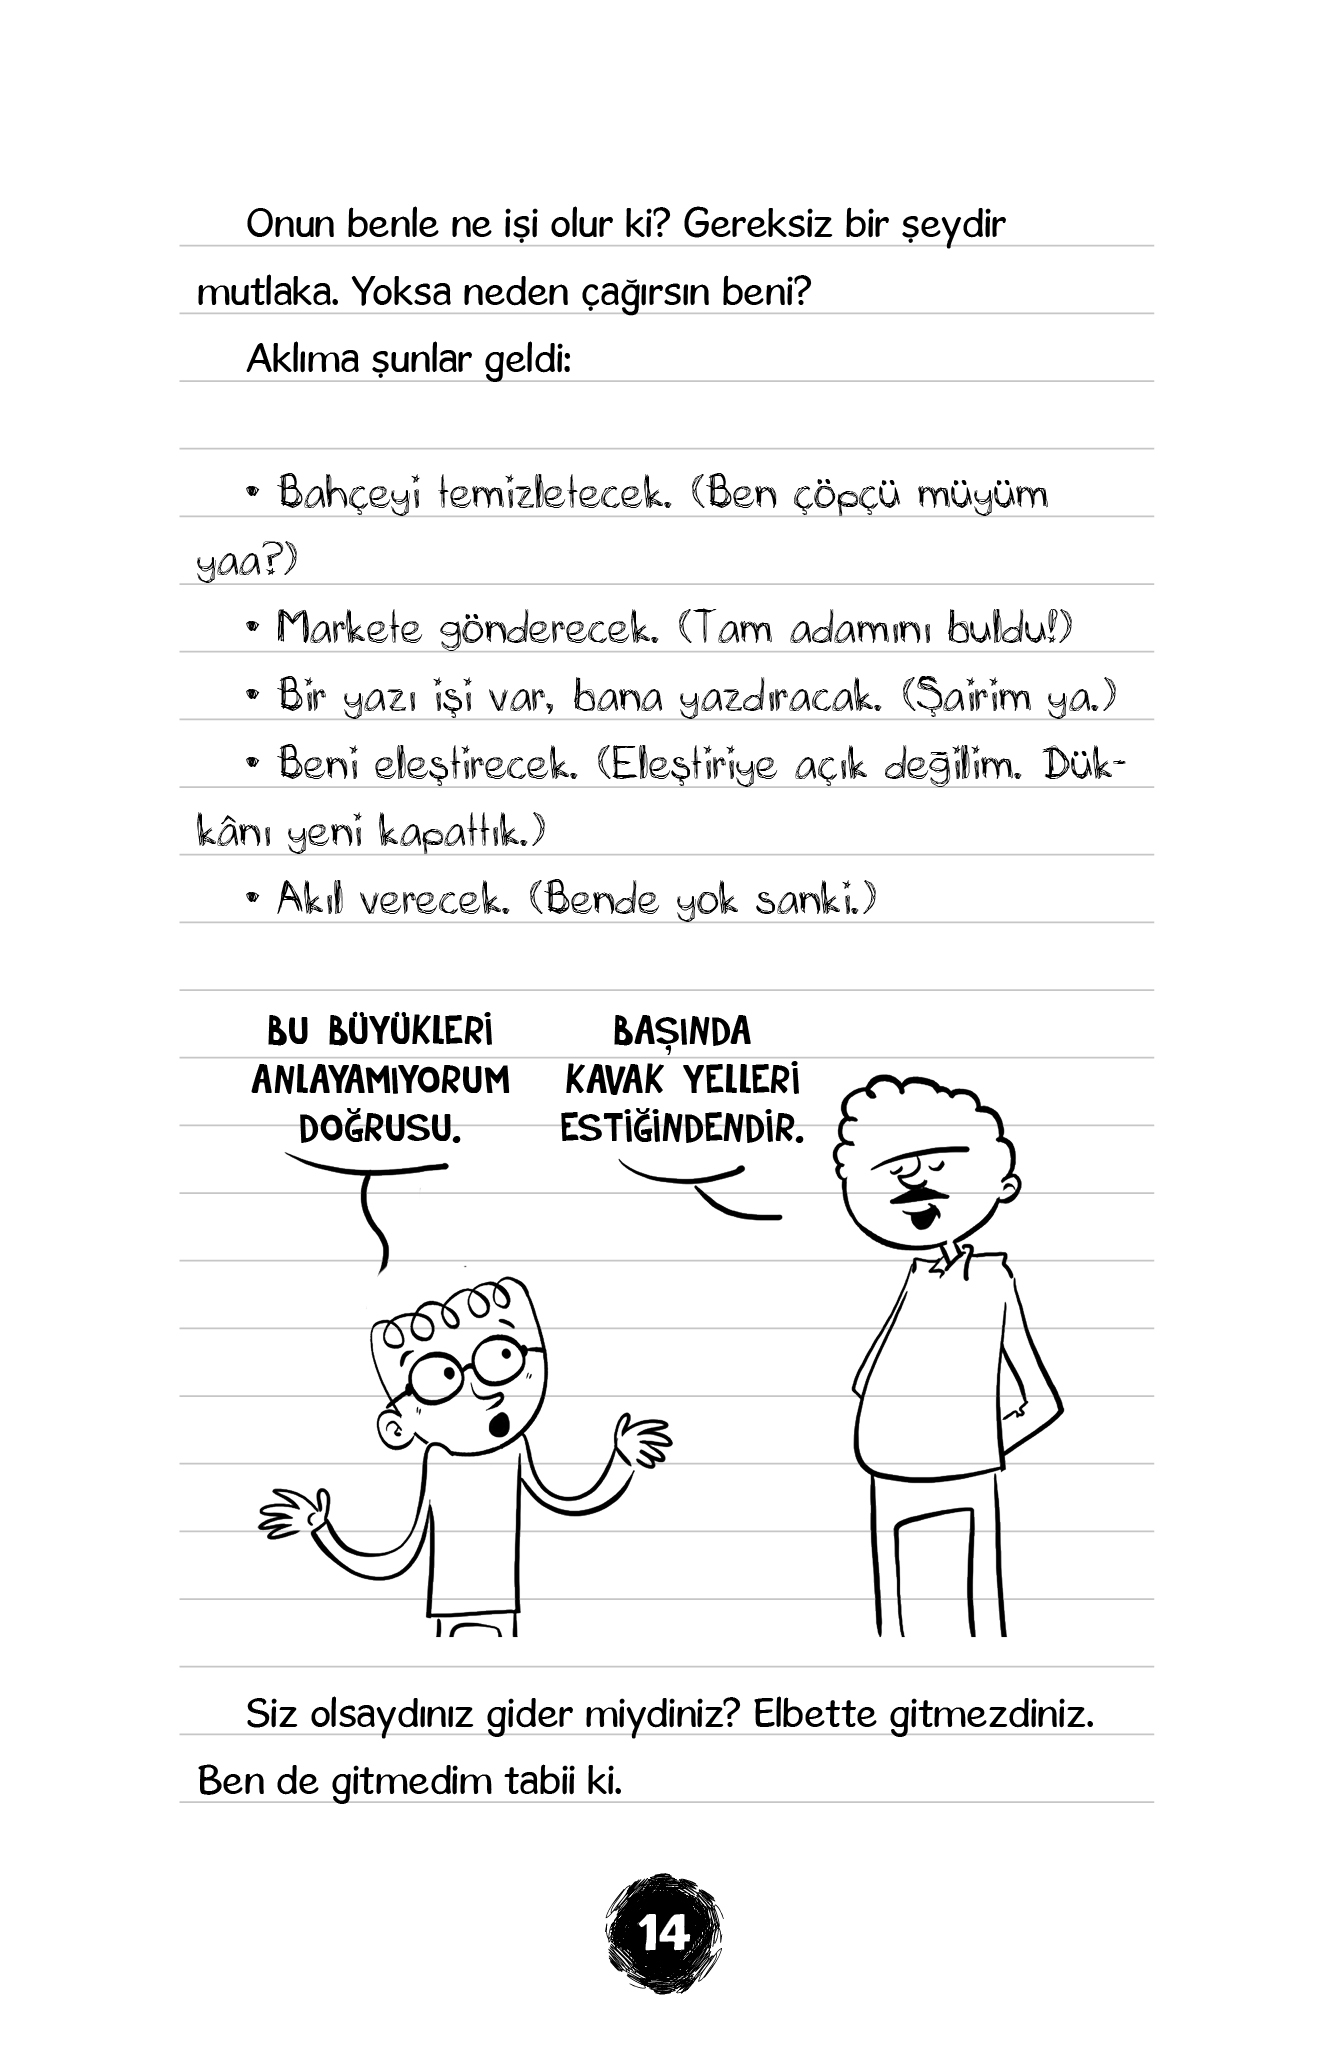 Onun benle ne işi olur ki? Gereksiz bir şeydir
mutlaka. Yoksa neden çağırsın beni?
Aklıma şunlar geldi:
• Bahçeyi temizletecek. (Ben çöpçü müyüm
yaa?)
• Markete gönderecek. (Tam adamını buldu!)
• Bir yazı işi var, bana yazdıracak. (Şairim ya.)
• Beni eleştirecek. (Eleştiriye açık değilim. Dük-
kânı yeni kapattık.)
• Akıl verecek. (Bende yok sanki.)
BU BÜYÜKLERİ
ANLAYAMIYORUM
DOĞRUSU.
BAŞINDA
KAVAK YELLERİ
ESTİĞİNDENDİR.
Siz olsaydınız gider miydiniz? Elbette gitmezdiniz.
Ben de gitmedim tabii ki.
14